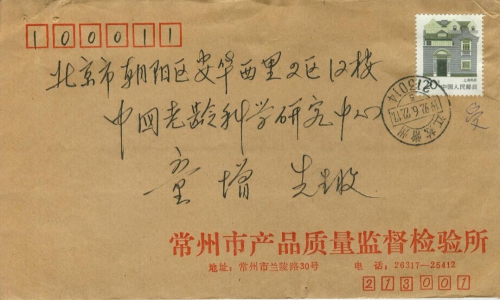 100011
北京市朝阳区安华西里2区12楼
中国老龄科学研究中心
童增 先生收
上海民居
20 中国人民邮政
213014
江苏常州
常州市产品质量监督检验所
地址：常州市兰陵路30号 电话：26317—25412
213001